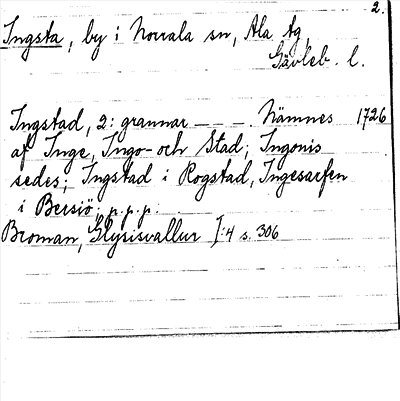 2.
Ingsta, by i Norrala sn, Ala tg,
Gävleb. l.
Ingstad, 2: grannar — — . Nämnes 1726
af Inge, Ingo- och Stad; Ingonis
sedes; Ingstad i Rogstad, Ingesarfen
i Bersiö; p.p.p.
Broman, Glysisvallur I:4 s. 306